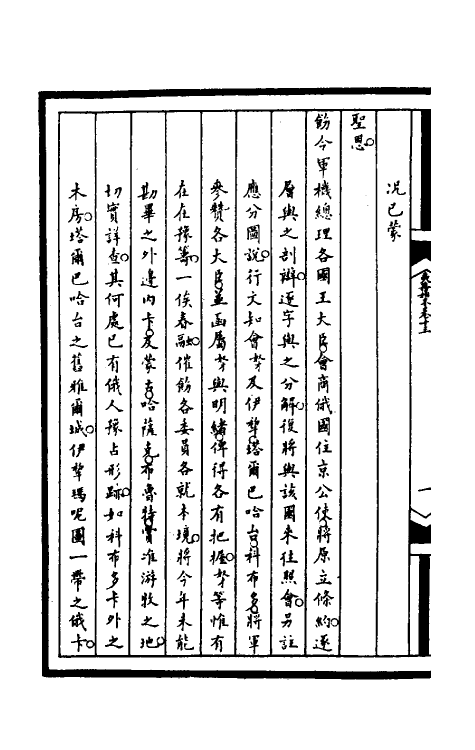 况已蒙
聖恩。
飭令軍機總理各國王大臣。會商俄國住京公使。將原立條約。逐
層與之剖辦。逐字與之分解。復將與該國來往照會。另註
應分圖說。行文知會。奴才及伊犂。塔爾巴哈台。科布多。將軍
參贊各大臣。並函屬奴才與明緒。俾得各有把握。奴才等惟有
在在豫籌。一俟春融。催飭各委員各就本境。將今年未能
勘畢之外邊內卡。及蒙古。哈薩克。布魯特。實准游牧之地。
切實詳查。其何處已有俄人豫占形跡。如科布多卡外之
木房。塔爾巴哈台之舊雅爾城。伊犂瑪呢圖一帶之俄卡。